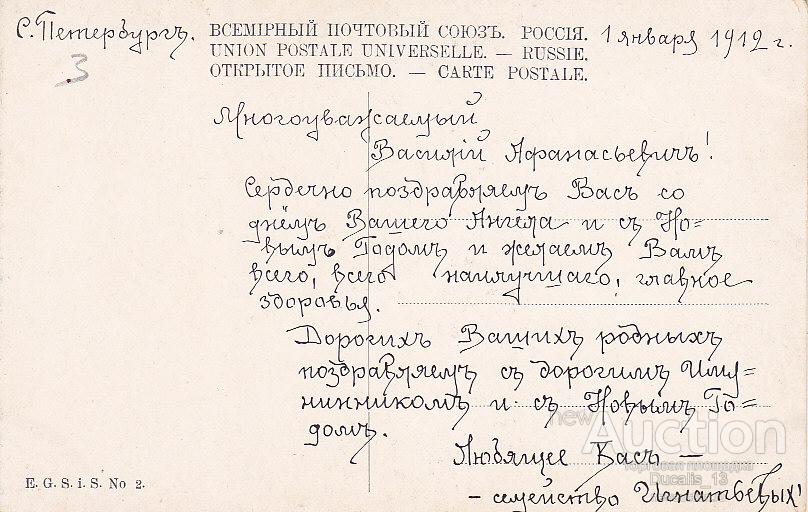 С. Петербургъ.
3
ВСЕМІРНЫЙ ПОЧТОВЫЙ СОЮЗЪ. РОССІЯ.
UNION POSTALE UNIVERSELLE. — RUSSIE.
ОТКРЫТОЕ ПИСЬМО. — CARTE POSTALE.
1 января 1912 г.
Многоуважаемый
Василій Афанасьевичъ!
Сердечно поздравляемъ Васъ со
днёмъ Вашего Ангела и съ Но=
вымъ Годомъ и желаемъ Вамъ
всего, всего наилучшаго, главное
здоровья.
Дорогихъ Вашихъ родныхъ
поздравляемъ съ дорогимъ Име=
нинникомъ и съ Новымъ Го=
домъ.
Любящее Васъ —
- семейство Игнатьевыхъ!
E. G. S. i. S. No 2.
newAuction
торговая площадка
Ducalis_13